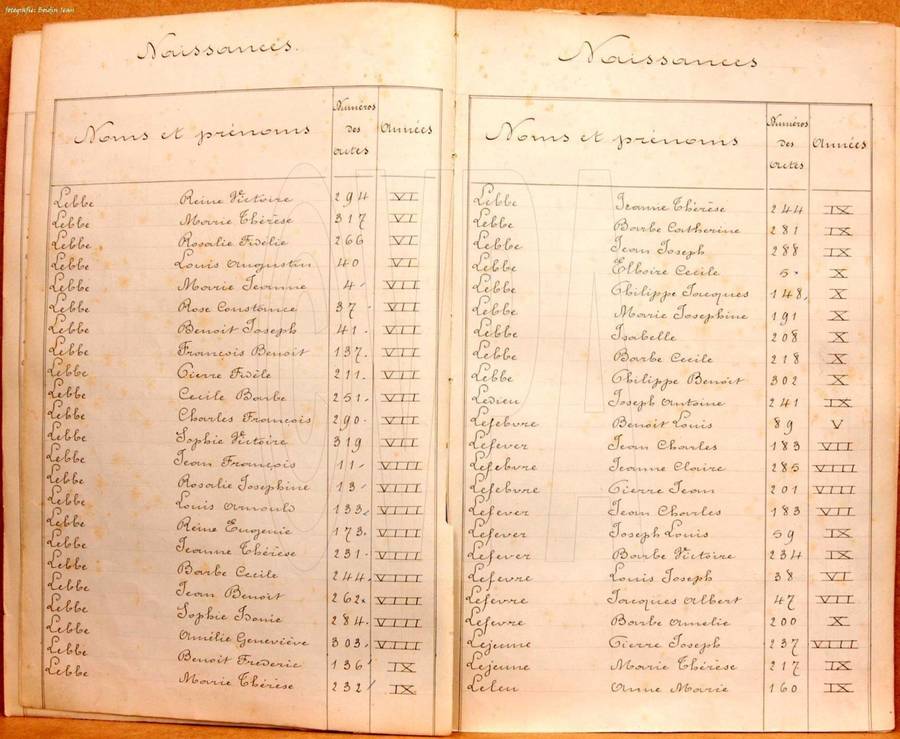 fotografie: Boidin Jean
Naissances.
Noms et prénoms Numéros des actes Années
Lebbe Reine Victoire 294 VI
Lebbe Marie Thérèse 317 VI
Lebbe Rosalie Fidélie 266 VI
Lebbe Louis Augustin 40 VI
Lebbe Marie Jeanne 4 VII
Lebbe Rose Constance 37 VII
Lebbe Benoit Joseph 41 VII
Lebbe François Benoit 137. VII
Lebbe Pierre Fidèle 211. VII
Lebbe Cecile Barbe 251. VII
Lebbe Charles François 290. VII
Lebbe Sophie Victoire 319 VII
Lebbe Jean François 11 VIII
Lebbe Rosalie Josephine 13 VIII
Lebbe Louis Arnould 133 VIII
Lebbe Reine Eugenie 173. VIII
Lebbe Jeanne Thérèse 231. VIII
Lebbe Barbe Cecile 244. VIII
Lebbe Jean Benoit 262 VIII
Lebbe Sophie 284. VIII
Lebbe Amélie Geneviève 303. VIII
Lebbe Benoit Frederic 136 IX
Lebbe Marie Thérèse 232 IX
Naissances
Noms et prénoms Numéros des actes Années
Lebbe Jeanne Thérèse 244 IX
Lebbe Barbe Catherine 281 IX
Lebbe Jean Joseph 288 IX
Lebbe Cecile 5. X
Lebbe Philippe Jacques 148. X
Lebbe Marie Josephine 191 X
Lebbe Isabelle 208 X
Lebbe Barbe Cecile 218 X
Lebbe Philippe Benoit 302 X
Ledieu Joseph Antoine 241 IX
Lefebvre Benoit Louis 89 V
Lefever Jean Charles 183 VII
Lefebvre Jeanne Claire 285 VIII
Lefebvre Pierre Jean 201 VIII
Lefever Jean Charles 183 VII
Lefever Joseph Louis 59 IX
Lefever Barbe Victoire 234 IX
Lefevre Louis Joseph 38 VI
Lefevre Jacques Albert 47 VII
Lefevre Barbe Amelie 200 X
Lejeune Pierre Joseph 237 VIII
Lejeune Marie Thérèse 217 IX
Leleu Anne Marie 160 IX